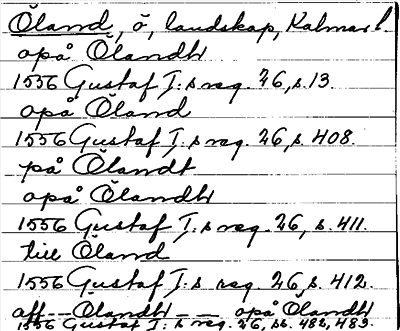 Öland, ö, landskap, Kalmar l.
opå Ölandh
1556 Gustaf I:s reg. 26, s. 13.
opå Öland
1556 Gustaf I:s reg. 26, s. 408.
på Ölandt
opå Ölandh
1556 Gustaf I:s reg. 26, s. 411.
till Öland
1556 Gustaf I:s reg. 26, s. 412.
aff -- Ölandh -- opå Ölandh
1556 Gustaf I:s reg. 26, ss. 482, 483.